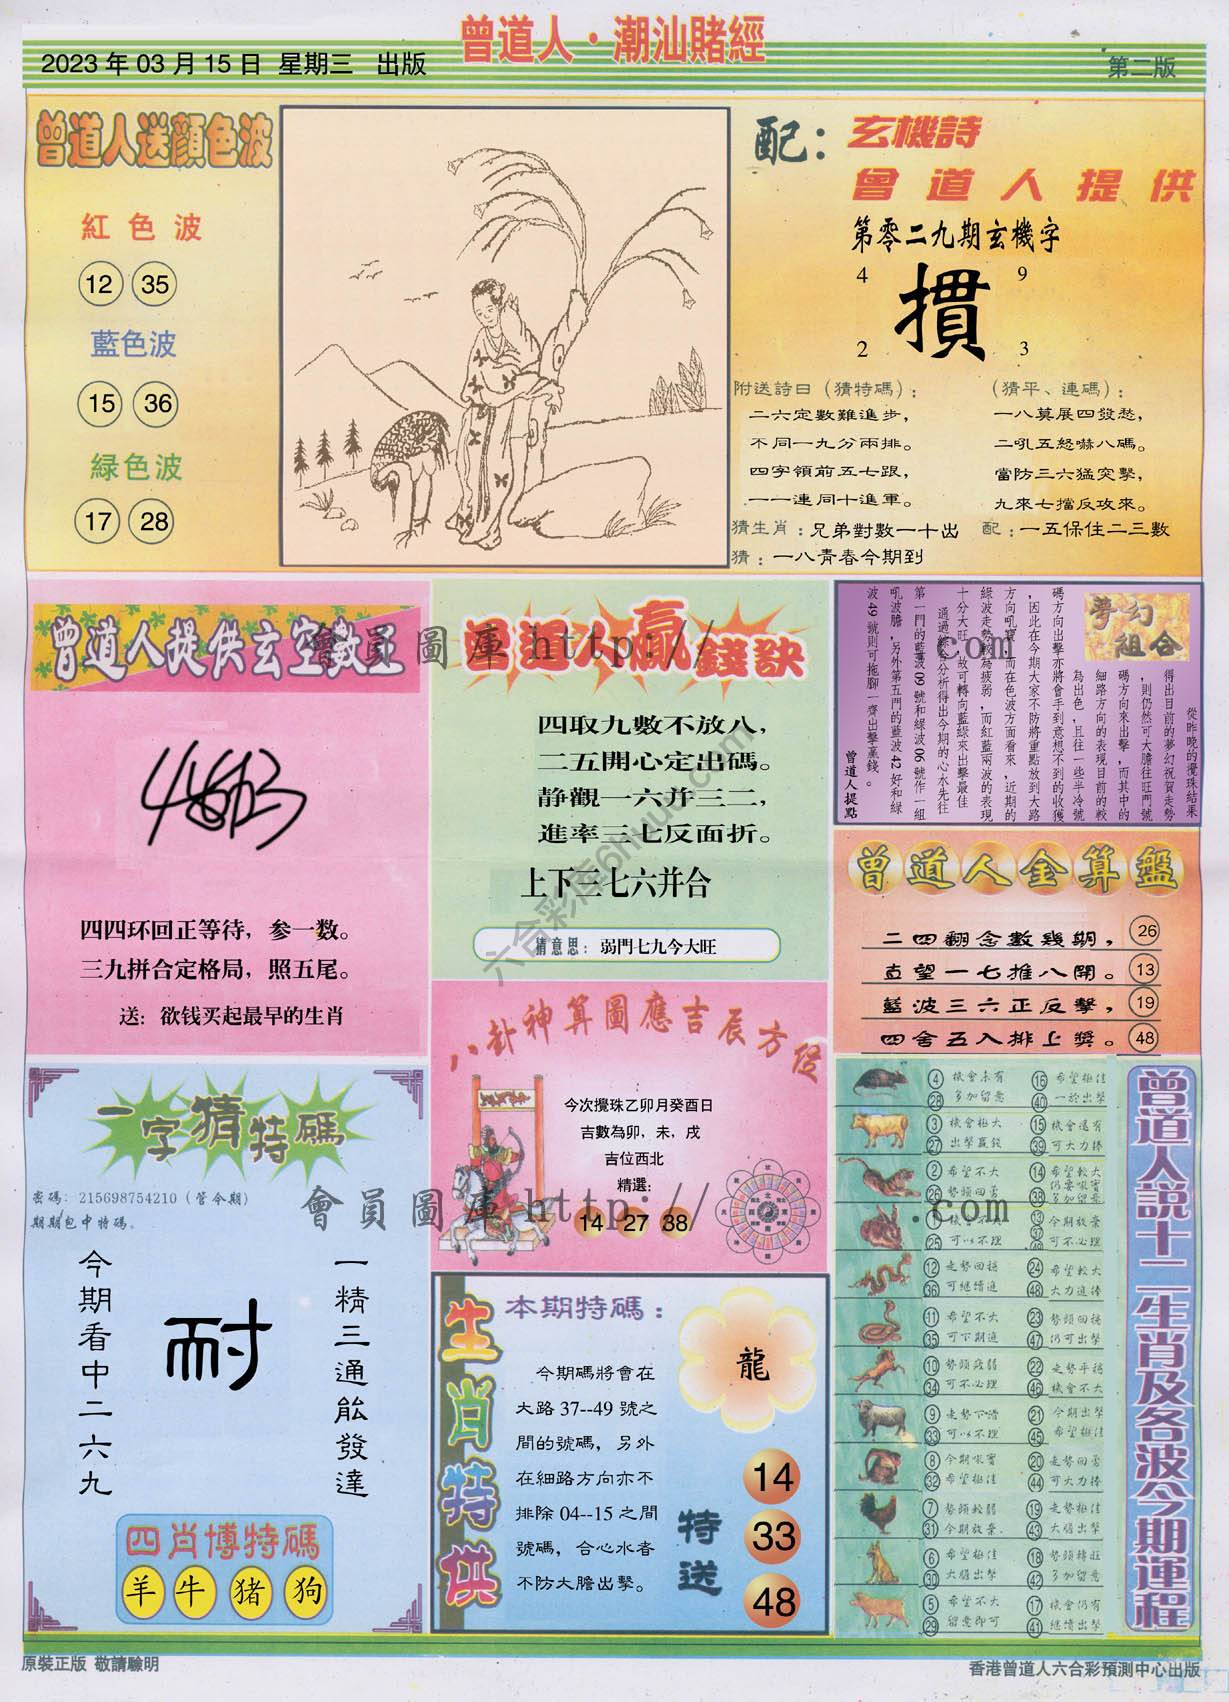 曾道人·潮汕賭經
2023年03月15日 星期三 出版
第二版
曾道人送顏色波
紅色波
12 35
藍色波
15 36
緑色波
17 28
配：玄機詩
曾道人提供
第零二九期玄機字
4 9
摜
2 3
附送詩曰（猜特碼）：
二六定數難進步，
不同一九分兩排。
四字領前五七跟，
一一連同十進軍。
（猜平、連碼）：
一八莫展四發愁，
二吼五怒嚇八碼。
當防三六猛突擊，
九來七擋反攻來。
猜生肖：兄弟對數一十出
配：一五保住二三數
猜：一八青春今期到
曾道人提供玄空數王
四四环回正等待，参一数。
三九拼合定格局，照五尾。
送：欲钱买起最早的生肖
曾道人贏錢訣
四取九數不放八，
二五開心定出碼。
静觀一六并三二，
進率三七反面折。
上下二七六并合
猜意思：弱門七九今大旺
夢幻組合
從昨晚的攪珠結果
得出目前的夢幻祝賀走勢
，則仍然可大膽往旺門號
碼方向來出擊，而其中的
細路方向的表現目前的較
為出色，且往一些半冷號
碼方向出擊亦將會手到意想不到的收獲
，因此在今期大家不防將重點放到大路
方向吼寶，而在色波方面看來，近期的
綠波走勢較為疲弱，而紅藍兩波的表現
十分大旺，故可轉向藍綠來出擊最佳
通過綜合分析得出今期的心水先往
第一門的藍波09號和綠波06號作一組
吼波膽，另外第五門的藍波42好和綠
波49號則可拖腳一齊出擊贏錢。
曾道人提點
曾道人金算盤
二四翻念數幾期， 26
直望一七推八開。 13
藍波三六正反擊， 19
四舍五入排上獎。 48
八卦神算圖應吉辰方位
今次攪珠乙卯月癸酉日
吉數為卯，未，戌
吉位西北
精選：
14 27 38
一字猜特碼
密碼：215698754210（管今期）
期期包中特碼。
今期看中二六九
耐
一精三通能發達
四肖博特碼
羊 牛 猪 狗
生肖特供
本期特碼：
今期碼將會在
大路37--49號之
間的號碼，另外
在細路方向亦不
排除04--15之間
號碼，合心水者
不防大膽出擊。
龍
特送
14
33
48
曾道人説十二生肖及各波今期運程
4 機會未有 16 希望極佳
28 多加留意 40 一於出擊
3 機會極大 15 機會還有
27 出擊贏錢 39 可大力捧
2 希望不大 14 希望較大
仍要吼實
26 勢頭回勇 38 多加留意
1 機會不大 13 今期放棄
37
25 可以不理 49 可不必理
12 走勢回穩 24 希望較大
36 可繼續追 48 大力追捧
11 希望不大 23 勢頭回穩
35 可下期追 47 仍可出擊
10 勢頭疲弱 22 走勢平穩
34 可不必理 46 機會不大
9 走勢下滑 21 今期出擊
33 可以不理 45 希望極佳
8 今期吼實 20 走勢回勇
32 希望極佳 44 可大力捧
7 勢頭較弱 19 走勢極佳
31 今期放棄. 43 大膽出擊
6 希望極佳 18 勢頭轉旺
30 大膽出擊 42 多加留意
5 希望不大 17 機會仍有
29 留意即可 41 繼續出擊
會員圖庫 http:// .com
六合彩庫6huuu.com
會員圖庫 http:// .com
原裝正版 敬請驗明
香港曾道人六合彩預測中心出版